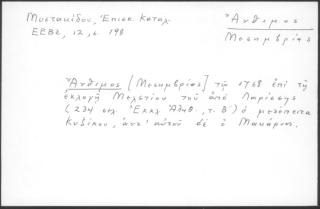 Μυστακίδου, Επισκ. Καταλ.
ΕΕΒΣ, 12, σ. 198
Ἄνθιμος
Μεσημβρίας
Ἄνθιμος [Μεσημβρίας] τῷ 1768 ἐπί τῇ
ἐκλογῇ Μελετίου τοῦ ἀπό Λαρίσης
(234 σελ. Ἐκκλ. Ἀληθ., τ. Β') ὁ μετέπειτα
Κυζίκου, ἀντ' αὐτοῦ δέ ὁ Μακάριος.